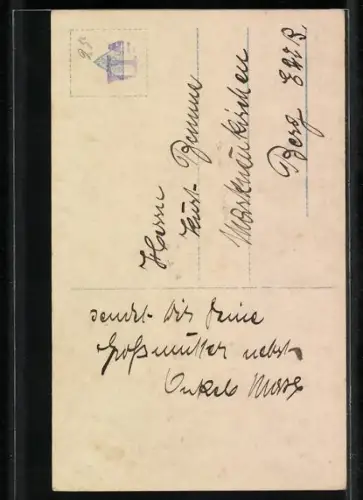 25
Herrn
Kurt
Markneukirchen
Berg
sendet Dir Deine
Großmutter nebst
Onkel Max